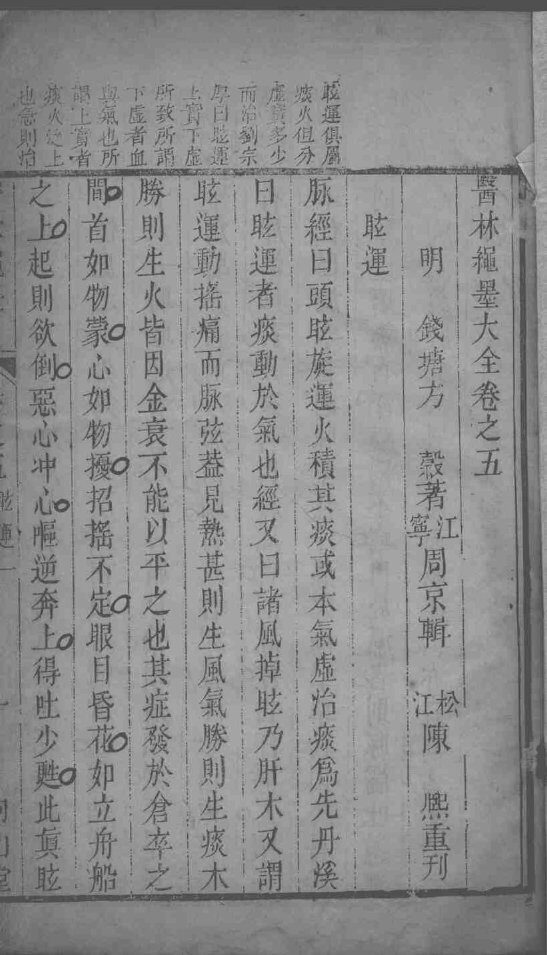 醫林繩墨大全卷之五
明 錢塘方 穀著 江寧周京輯 松江陳 熈重刊
眩運
脉經曰頭眩旋運火積其痰或本氣虛治痰爲先丹溪
曰眩運者痰動於氣也經又曰諸風掉眩乃肝木又謂
眩運動搖痛而脉弦葢見熱甚則生風氣勝則生痰木
勝則生火皆因金衰不能以平之也其症發於倉卒之
間首如物蒙心如物擾招搖不定眼目昏花如立舟船
之上起則欲倒惡心冲心嘔逆奔上得吐少甦此眞眩
眩運俱屬
痰火但分
虛實多少
而治劉宗
厚曰眩運
上實下虛
所致所謂
下虛者血
與氣也所
謂上實者
痰火之上
也急則治
眩運
一